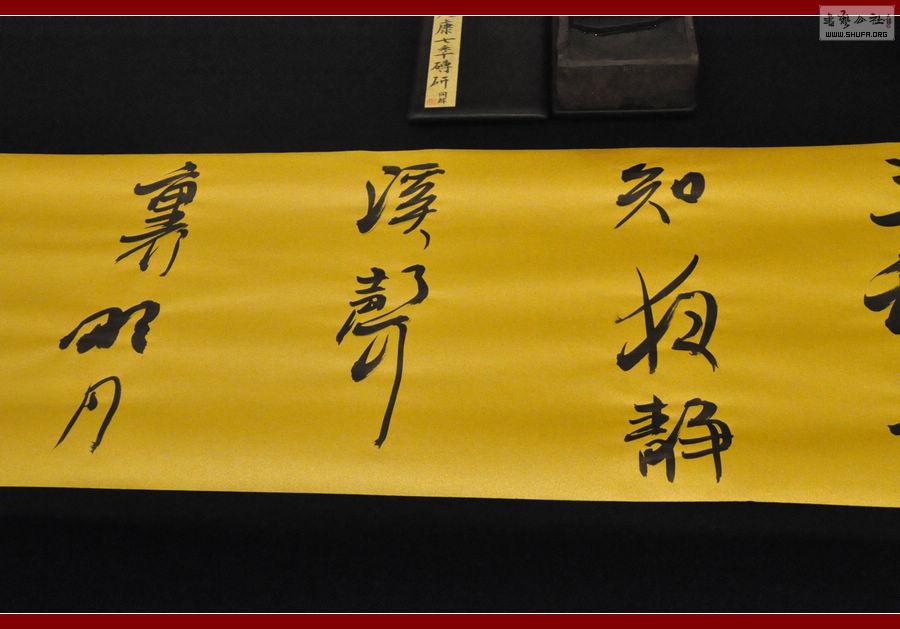 知夜静
溪聲
裏明月
康七年磚研
書藝公社
WWW.SHUFA.ORG